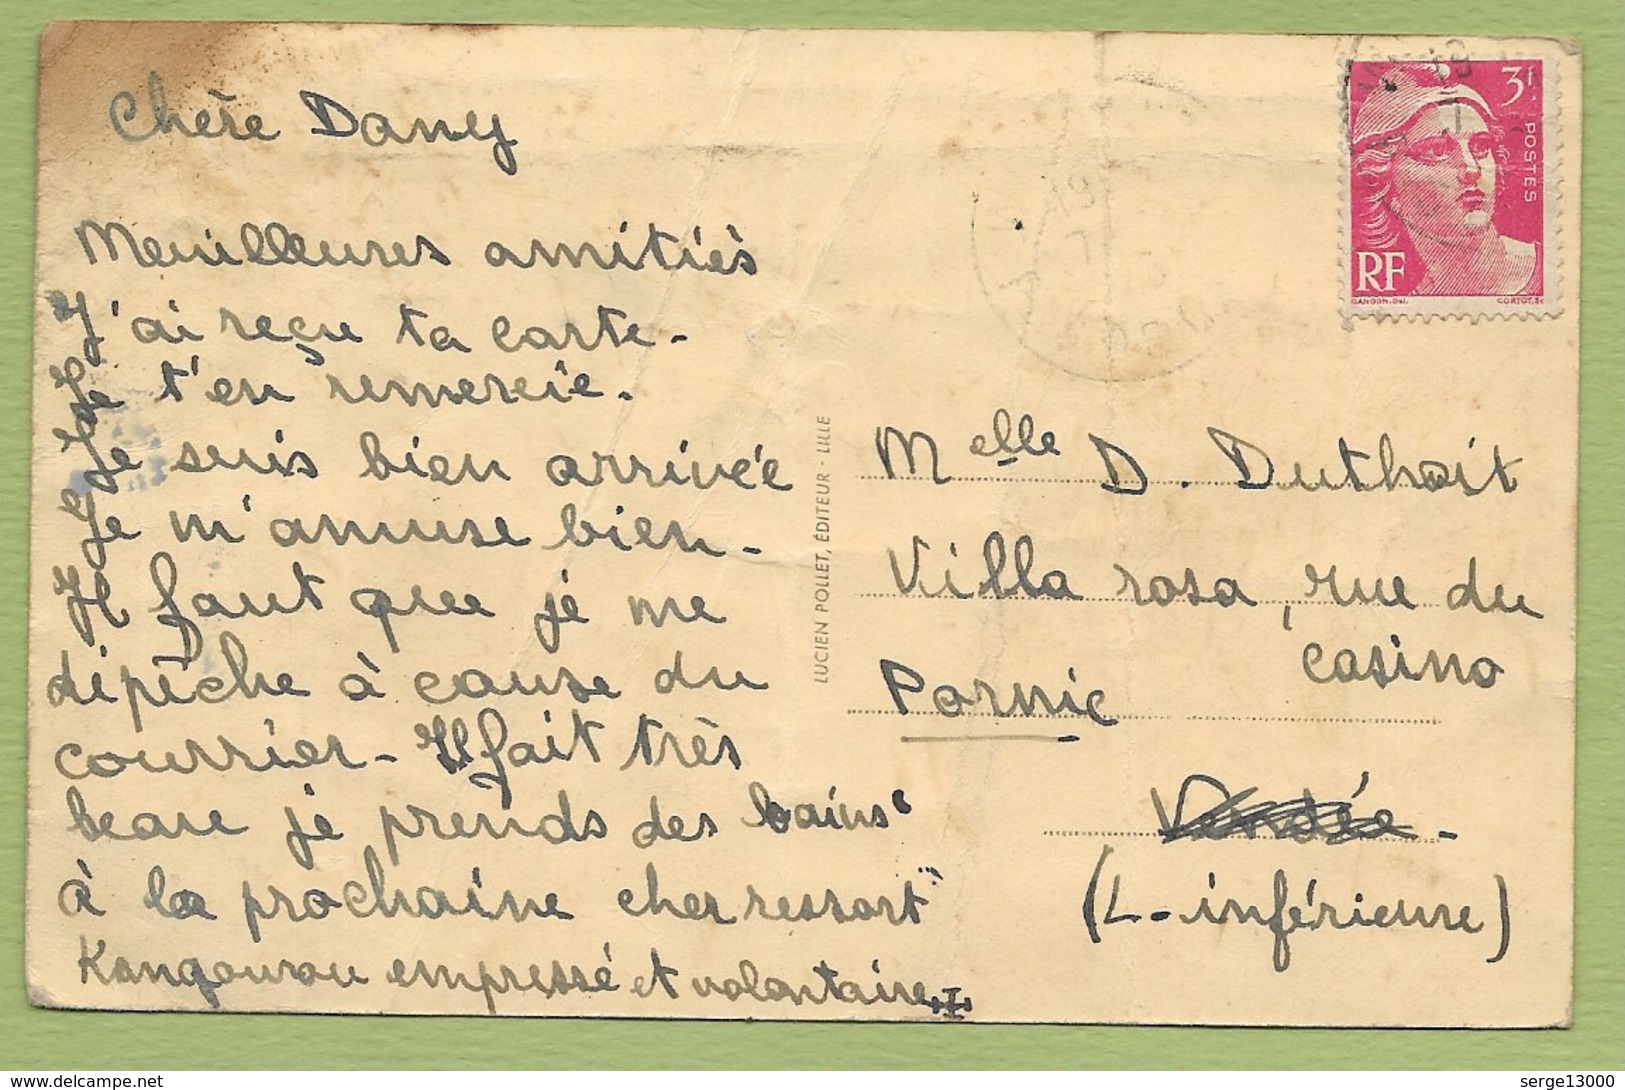 Chère Dany
Meuilleures amitiés
J'ai reçu ta carte.
Je t'en remercie.
Je suis bien arrivée
Je m'amuse bien.
Il faut que je me
dépèche à cause du
courrier. Il fait très
beau je prends des bains
à la prochaine cher ressort
Kangourou empressé et volontaire
LUCIEN POLLET, ÉDITEUR - LILLE
3F
POSTES
RF
GANDON.Del.
CORTOT.Sc
Melle D. Duthoit
Villa rosa, rue du
casino
Pornic
Vendée -
(L-inférieure)
delcampe.net
serge13000